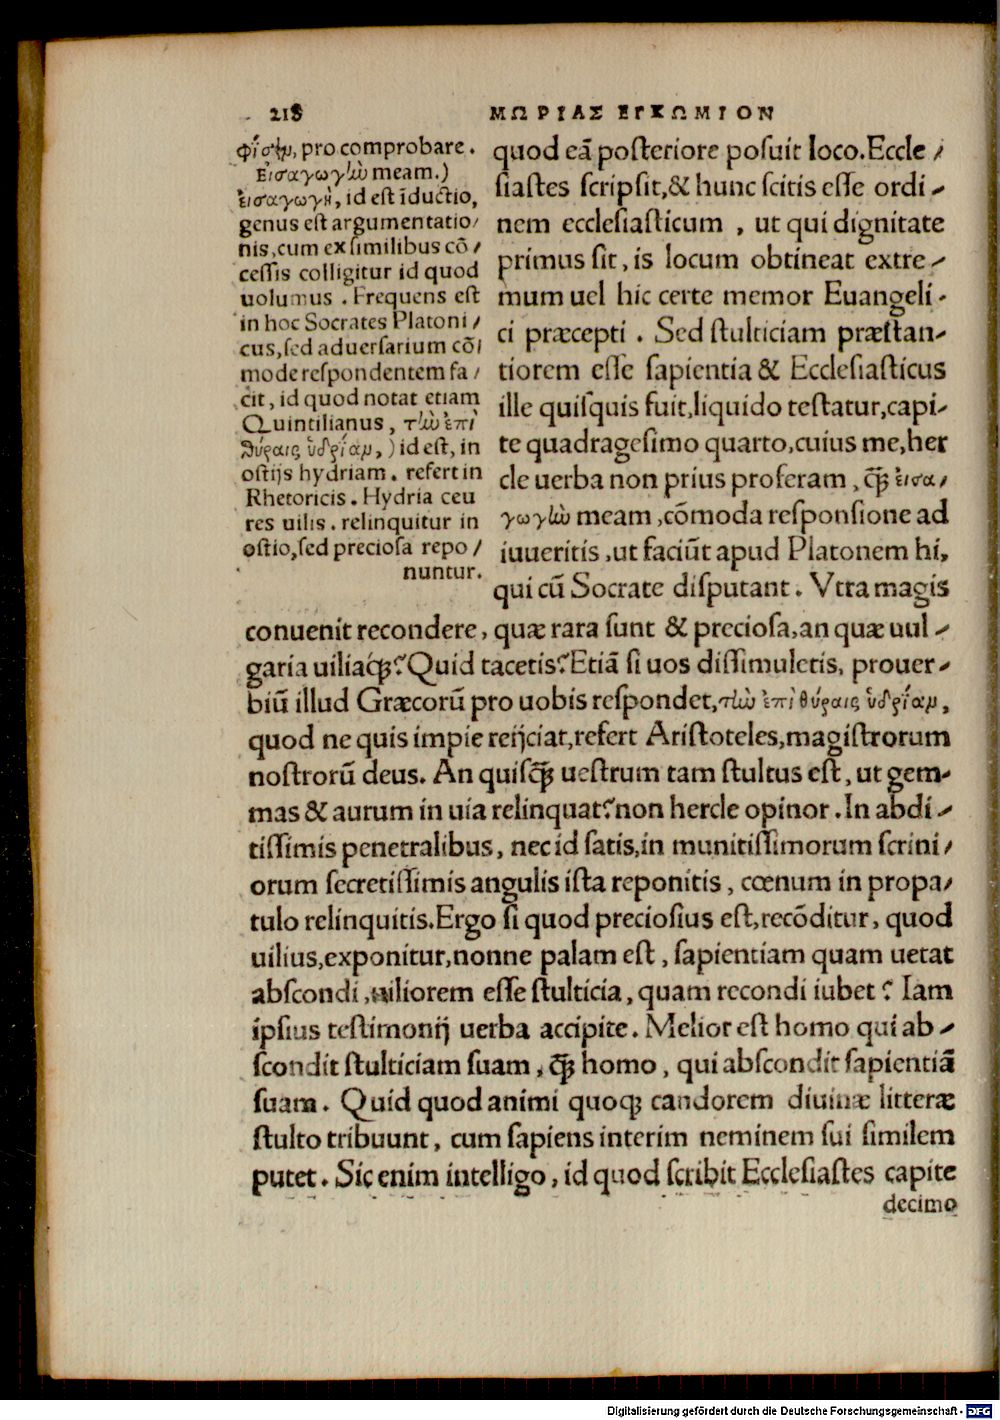 218 ΜΩΡΙΑΣ ΕΓΚΩΜΙΟΝ
pro comprobare.
Εἰσαγωγὴν meam.)
εἰσαγωγὴ, id est īductio,
genus est argumentatio/
nis, cum ex similibus cō/
cessis colligitur id quod
uolumus. Frequens est
in hoc Socrates Platoni/
cus, sed aduersarium cō/
mode respondentem fa/
cit, id quod notat etiam
Quintilianus, τὴν ἐπὶ
θύραις ὑδρίαν,) id est, in
ostijs hydriam. refert in
Rhetoricis. Hydria ceu
res uilis. relinquitur in
ostio, sed preciosa repo/
nuntur.
quod eā posteriore posuit loco. Eccle/
siastes scripsit, & hunc scitis esse ordi-
nem ecclesiasticum, ut qui dignitate
primus sit, is locum obtineat extre-
mum uel hic certe memor Euangeli-
ci præcepti. Sed stulticiam præstan-
tiorem esse sapientia & Ecclesiasticus
ille quisquis fuit, liquido testatur, capi-
te quadragesimo quarto, cuius me, her
cle uerba non prius proferam, q̄ꝫ εἰσα/
γωγὴν meam, cōmoda responsione ad
iuueritis, ut faciūt apud Platonem hi,
qui cū Socrate disputant. Vtra magis
conuenit recondere, quæ rara sunt & preciosa, an quæ uul-
garia uiliaqꝫ? Quid tacetis? Etiā si uos dissimuletis, prouer-
biū illud Græcorū pro uobis respondet, τὴν ἐπὶ θύραις ὑδρίαν,
quod ne quis impie reijciat, refert Aristoteles, magistrorum
nostrorū deus. An quisq̄ꝫ uestrum tam stultus est, ut gem-
mas & aurum in uia relinquat? non hercle opinor. In abdi-
tissimis penetralibus, nec id satis, in munitissimorum scrini/
orum secretissimis angulis ista reponitis, cœnum in propa/
tulo relinquitis. Ergo si quod preciosius est, recōditur, quod
uilius, exponitur, nonne palam est, sapientiam quam uetat
abscondi, uiliorem esse stulticia, quam recondi iubet? Iam
ipsius testimonij uerba accipite. Melior est homo qui ab-
scondit stulticiam suam, q̄ꝫ homo, qui abscondit sapientiā
suam. Quid quod animi quoqꝫ candorem diuinæ litteræ
stulto tribuunt, cum sapiens interim neminem sui similem
putet. Sic enim intelligo, id quod scribit Ecclesiastes capite
decimo
Digitalisierung gefördert durch die Deutsche Forschungsgemeinschaft - DFG